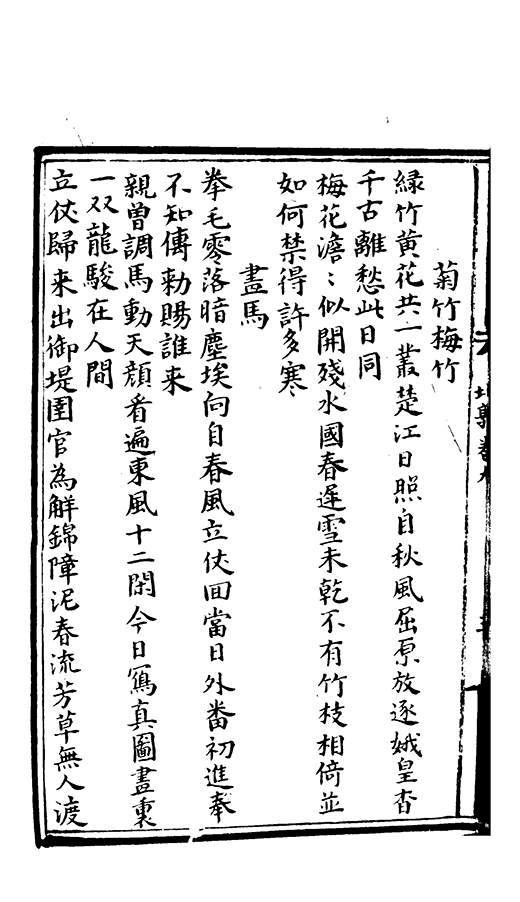 菊竹梅竹
緑竹黄花共一叢楚江日照自秋風屈原放逐娥皇杳
千古離愁此日同
梅花澹〻似開殘水國春遲雪未乾不有竹枝相倚並
如何禁得許多寒
畫馬
拳毛零落暗塵埃向自春風立仗回當日外番初進奉
不知傳勅賜誰来
親曽調馬動天顔看遍東風十二閑今日寫真圖畫裏
一双龍駿在人間
立仗歸来出御堤圉官為觧錦障泥春流芳草無人渡